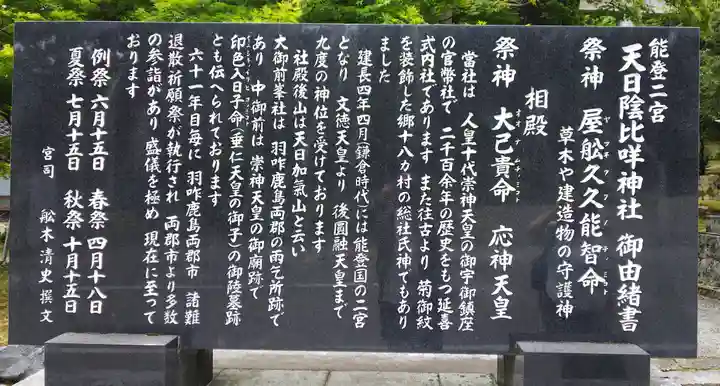 能登二宮
天日陰比咩神社 御由緒書
祭神 屋舩久久能智命
ヤフネククノチノミコト
草木や建造物の守護神
相殿
祭神 大己貴命 応神天皇
オオナムチノミコト
當社は 人皇十代崇神天皇の御宇御鎮座
の官幣社で 二千百余年の歴史をもつ延喜
式内社であります また往古より 菊御紋
を装飾した郷十八ヵ村の総社氏神でもあり
ました
建長四年四月(鎌倉時代)には能登国の二宮
となり 文徳天皇より 後圓融天皇まで
九度の神位を受けております
社殿後山は天日加氣山と云い
大御前峯社は 羽咋鹿島両郡の雨乞所跡で
あり 中御前は 崇神天皇の御廟跡で
印色入日子命(垂仁天皇の御子)の御陵墓跡
とも伝へられております
六十一年目毎に 羽咋鹿島両郡市 諸難
退散祈願祭が執行され 両郡市より多数
の参詣があり 盛儀を極め 現在に至って
おります
例祭 六月十五日 春祭 四月十八日
夏祭 七月十五日 秋祭 十月十五日
宮司 舩木清史 撰文